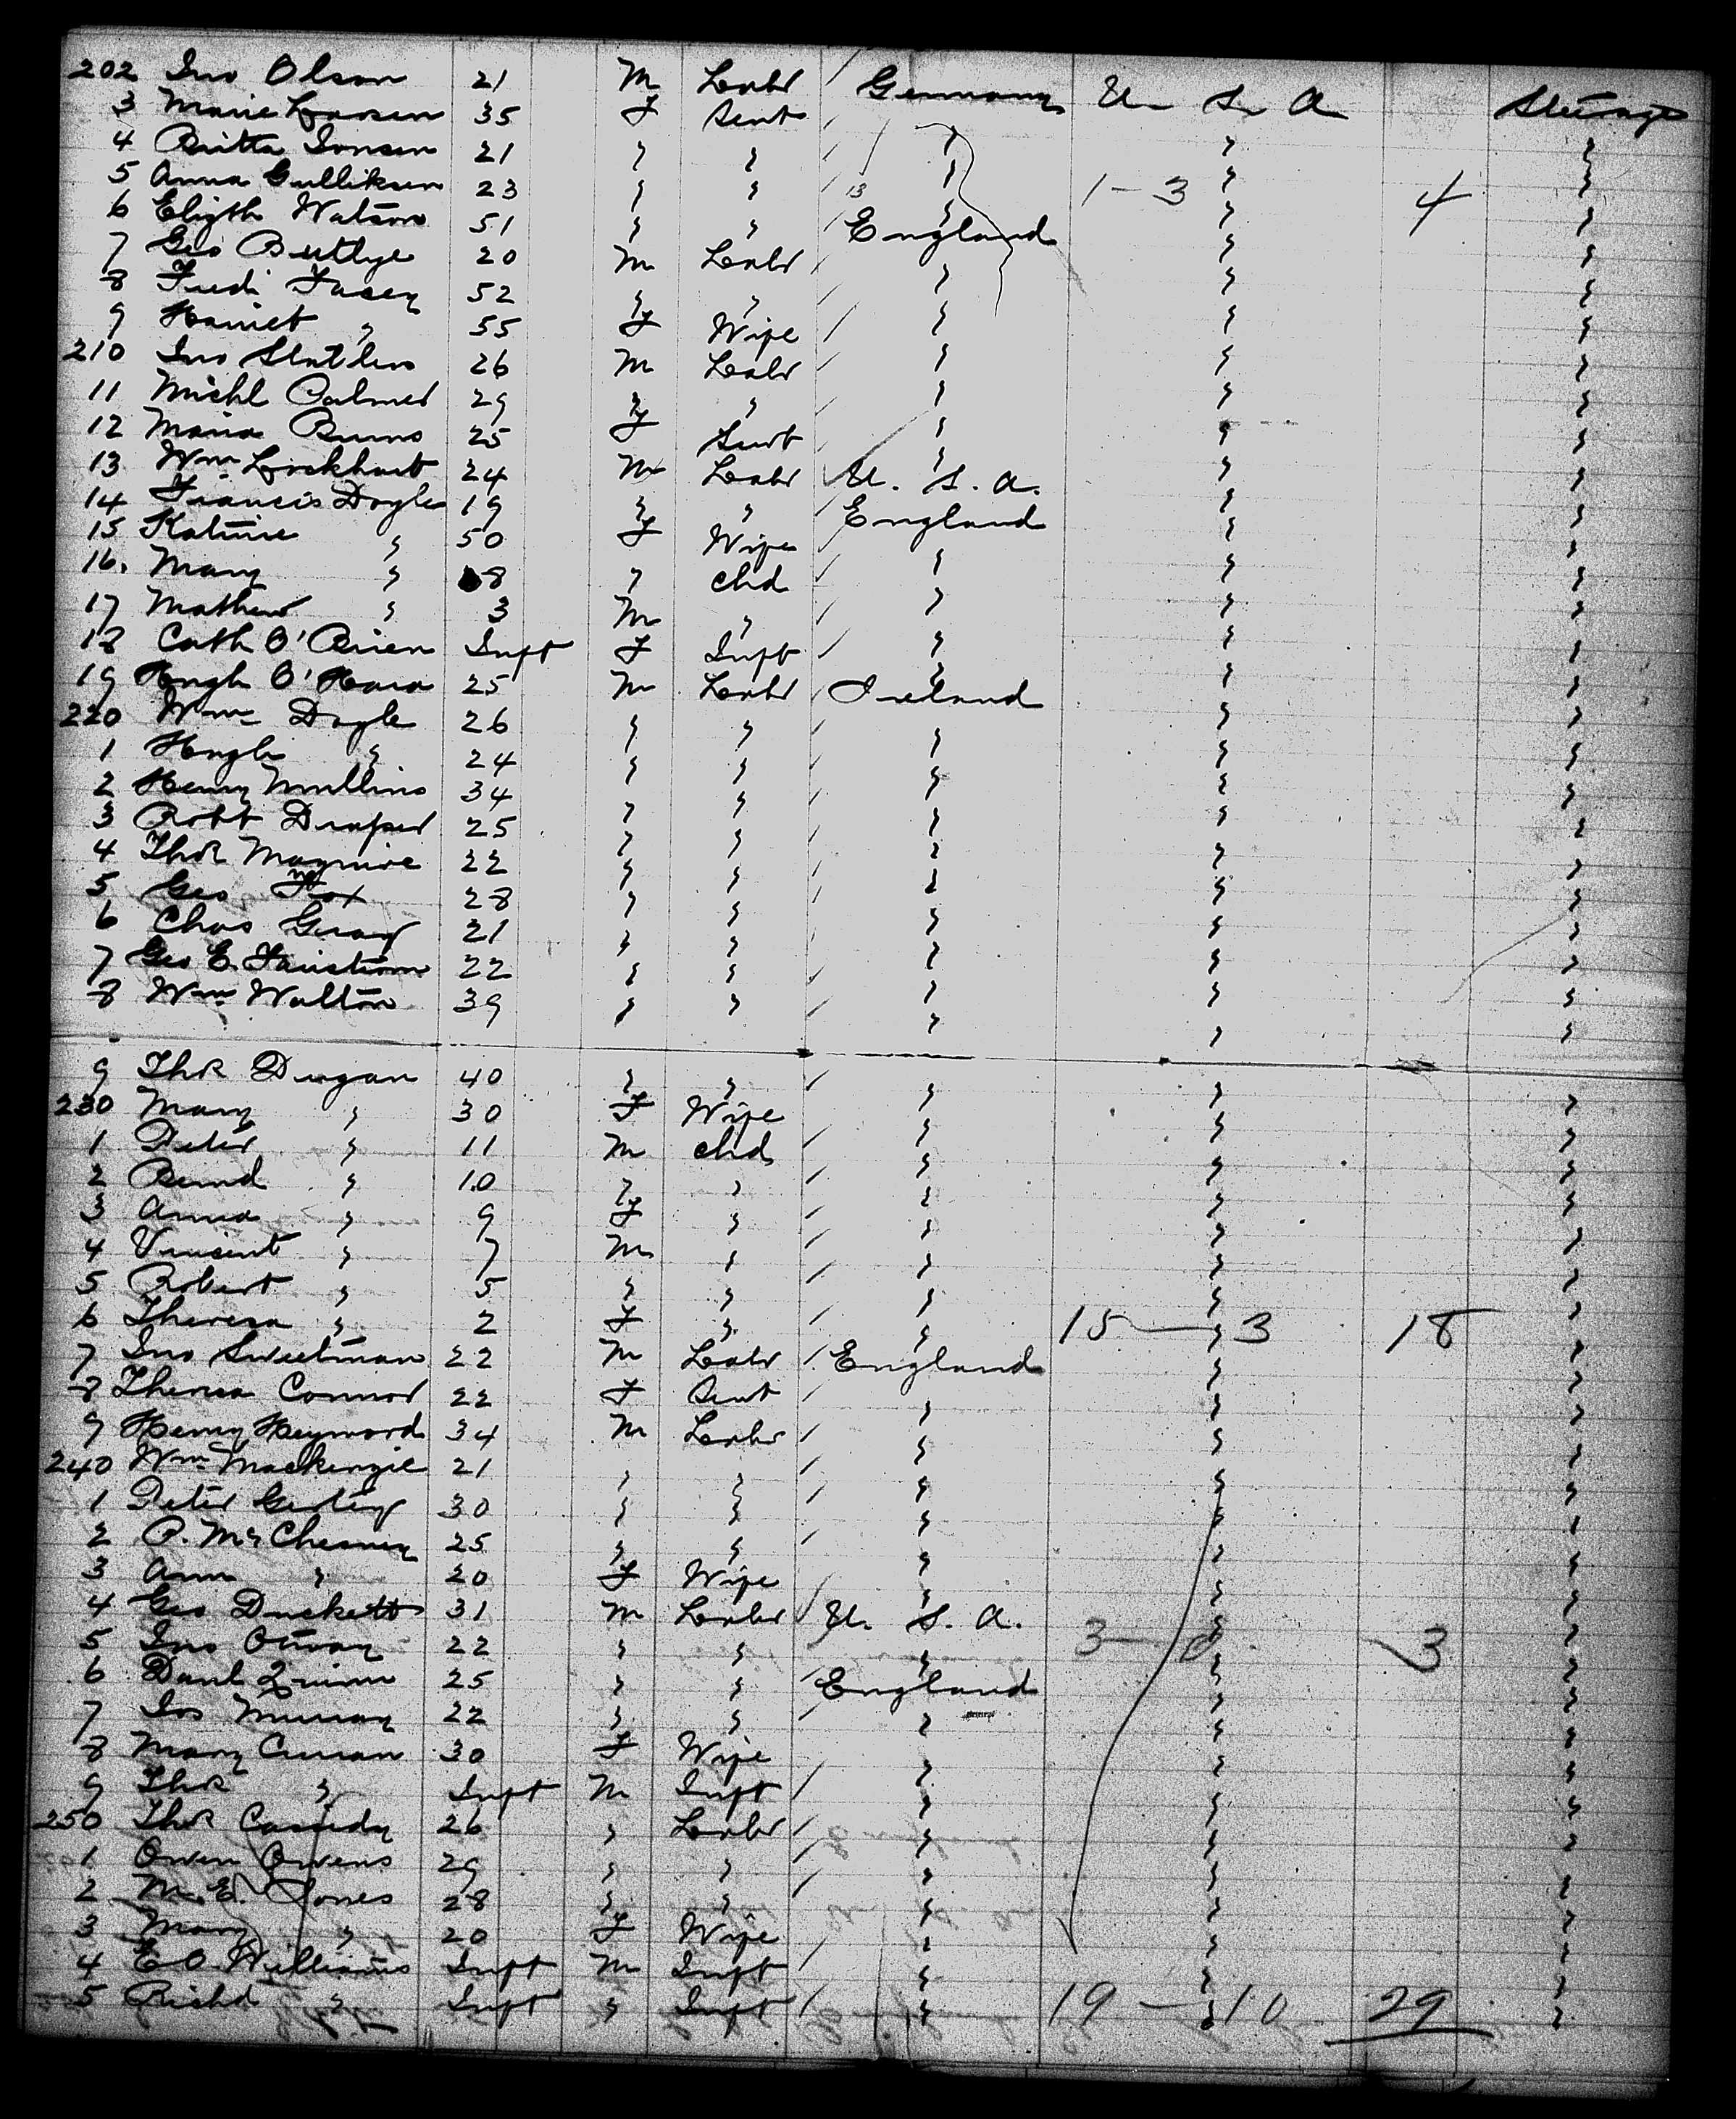 202 Jno Olson 21 M Labr Germany U. S. A Steerage
3 Marie Larsen 35 F Servt " " "
4 Britta Jonsen 21 " " " " "
5 Anna Gulliksen 23 " " 13 " 1-3 " 4 "
6 Elizth Watson 51 " " England " "
7 Geo 20 M Labr " " "
8 Fredk 52 " " " " "
9 Harriet " 55 F Wife " " "
210 Jno 26 M Labr " " "
11 Michl 29 " " " " "
12 Maria Burns 25 F Servt " " "
13 Wm Lockhart 24 M Labr U. S. A. " "
14 Francis Doyle 19 " " England " "
15 Katrine " 50 F Wife " " "
16. Mary " 8 " chd " " "
17 Mathew " 3 M " " " "
18 Cath O'Brien Inft F Inft " " "
19 Hugh O'Hara 25 M Labr Ireland " "
220 Wm Doyle 26 " " " " "
1 Hugh " 24 " " " " "
2 Henry Mullins 34 " " " " "
3 Robt Draper 25 " " " " "
4 Thos Maguire 22 " " " " "
5 Geo Fox 28 " " " " "
6 Chas 21 " " " " "
7 Geo E. 22 " " " " "
8 Wm Walton 39 " " " " "
9 Thos Dugan 40 " " " " "
230 Mary " 30 F Wife " " "
1 Peter " 11 M chd " " "
2 Bernd " 10 " " " " "
3 Anna " 9 F " " " "
4 Vincent " 7 M " " " "
5 Robert " 5 " " " " "
6 Theresa " 2 F " " 15 - 3 18 "
7 Jno Sweetman 22 M Labr England " "
8 Theresa Connor 22 F Servt " " "
9 Henry Heyword 34 M Labr " " "
240 Wm Mackenzie 21 " " " " "
1 Peter 30 " " " " "
2 P. McChesney 25 " " " " "
3 Ann " 20 F Wife " " "
4 Geo Duckett 31 M Labr U. S. A. " "
5 Jno Otway 22 " " " 3 - 0 3 "
6 Danl Quinn 25 " " England " "
7 Jos Murray 22 " " " " "
8 Mary Curran 30 F Wife " " "
9 Thos " Inft M Inft " " "
250 Thos Cassidy 26 " Labr " " "
1 Owen Owens 29 " " " " "
2 M. E. Jones 28 " " " " "
3 Mary " 20 F Wife " " "
4 E O. Williams Inft M Inft " " "
5 Richd " Inft " Inft " 19 - 10 29 "